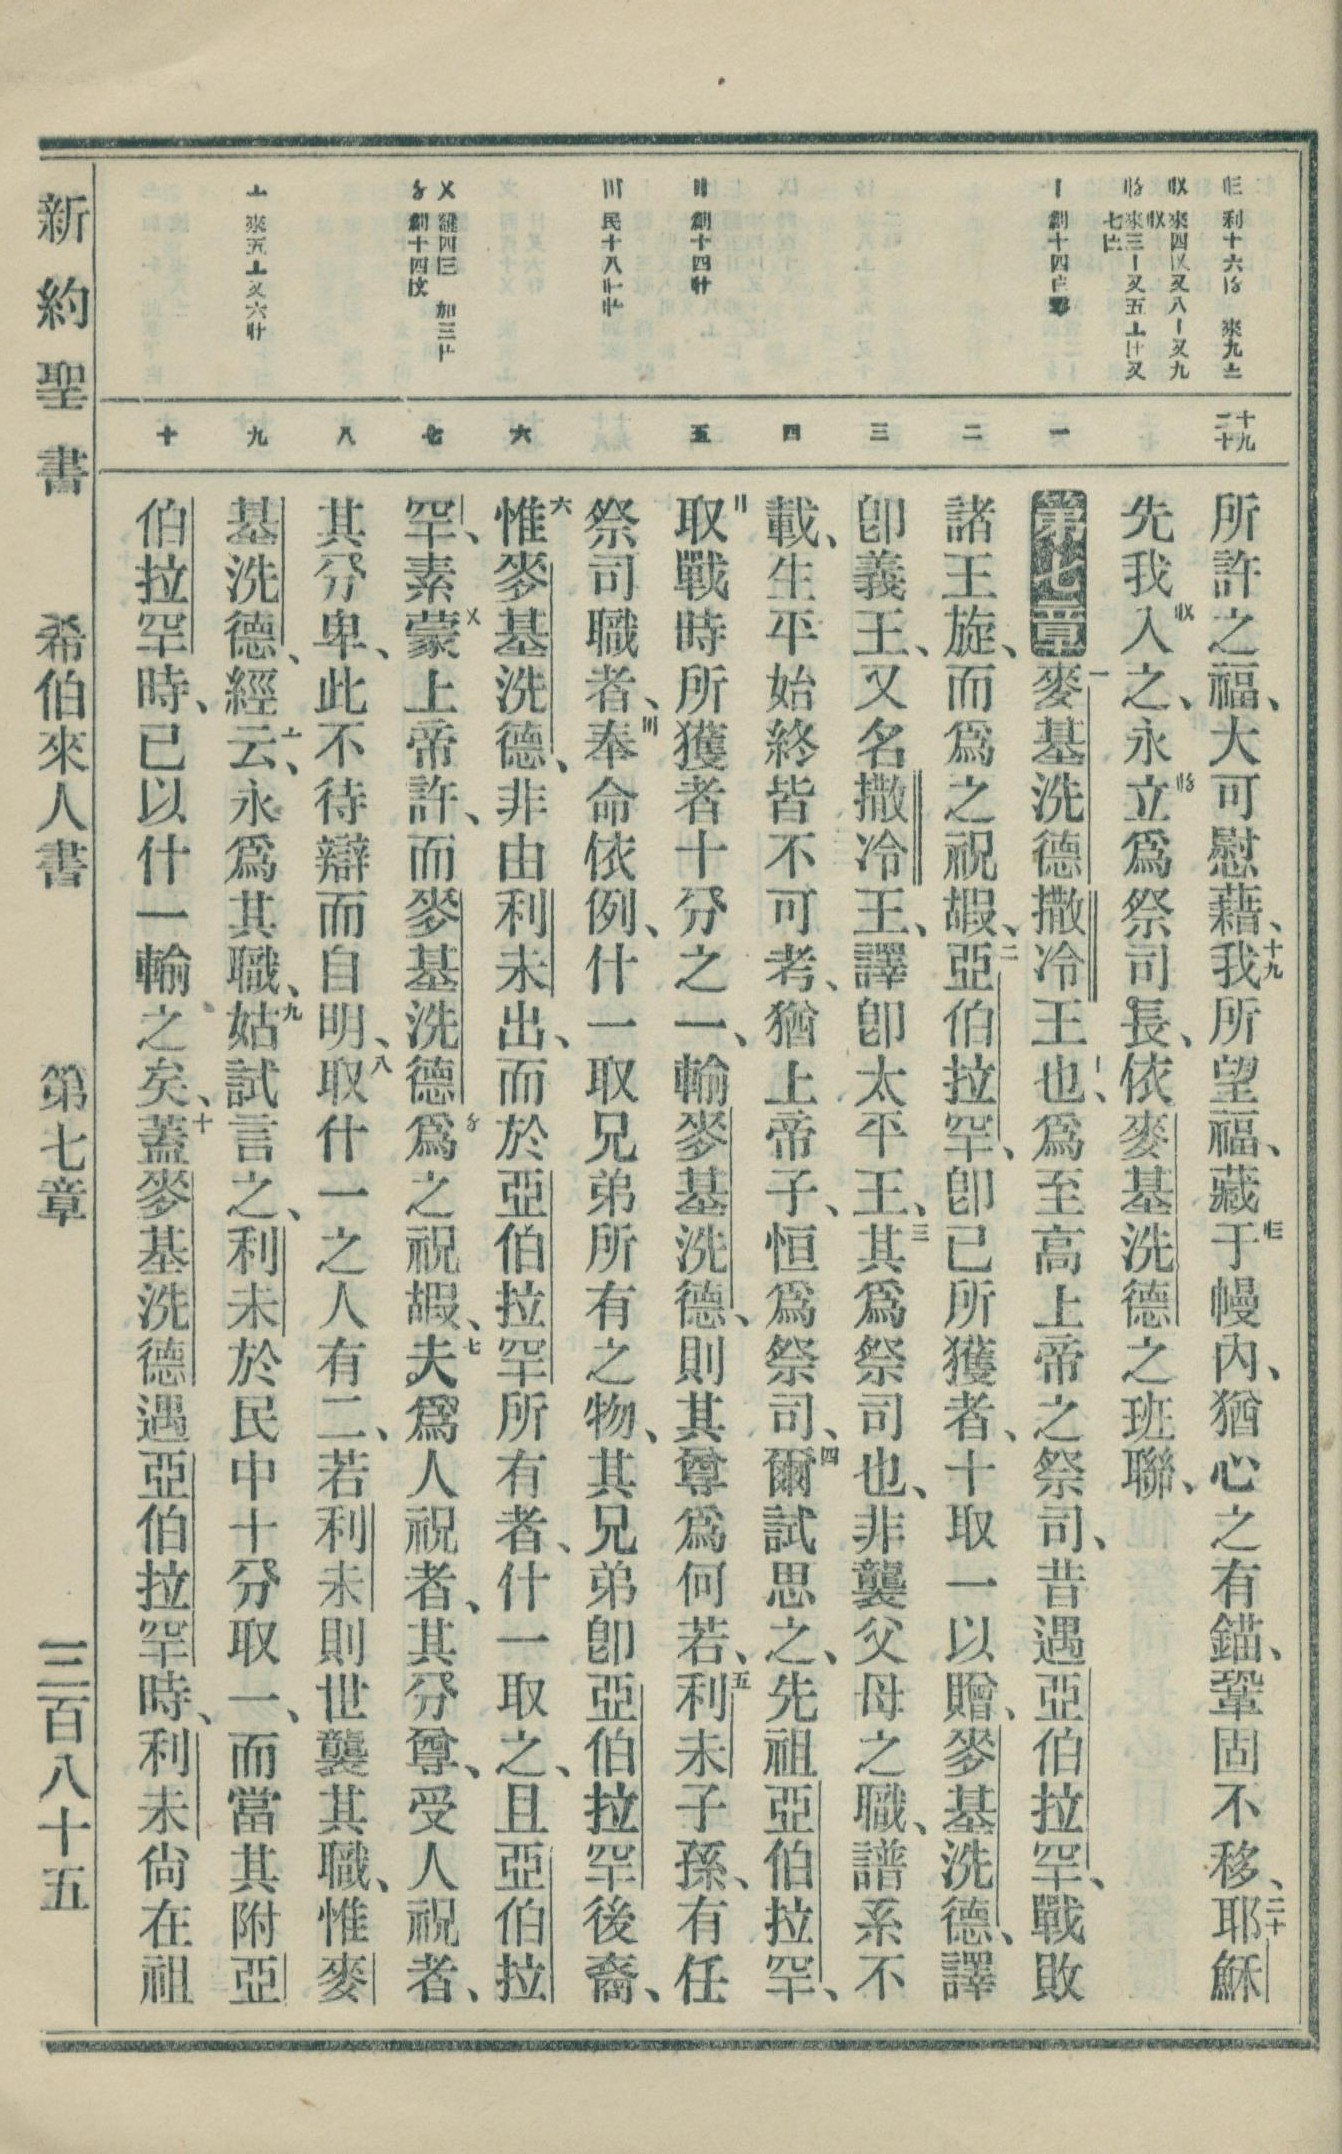 十九
二十
一
二
三
四
五
六
七
八
九
十
所許之福、大可慰藉、十九我所望福、藏于幔內、猶心之有錨、鞏固不移、二十耶穌
先我入之、永立爲祭司長、依麥基洗德之班聯、
第七章一麥基洗德撒冷王也、爲至高上帝之祭司、昔遇亞伯拉罕、戰敗
諸王旋、而爲之祝嘏、二亞伯拉罕、卽已所獲者、十取一以贈、麥基洗德、譯
卽義王、又名撒冷王、譯卽太平王、三其爲祭司也、非襲父母之職、譜系不
載、生平始終皆不可考、猶上帝子、恒爲祭司、四爾試思之、先祖亞伯拉罕、
取戰時所獲者十分之一、輸麥基洗德、則其尊爲何若、五利未子孫、有任
祭司職者、奉命依例、什一取兄弟所有之物、其兄弟卽亞伯拉罕後裔、
六惟麥基洗德、非由利未出、而於亞伯拉罕所有者、什一取之、且亞伯拉
罕、素蒙上帝許、而麥基洗德爲之祝嘏、七夫爲人祝者、其分尊、受人祝者、
其分卑、此不待辯而自明、八取什一之人有二、若利未則世襲其職、惟麥
基洗德、經云、永爲其職、九姑試言之、利未於民中十分取一、而當其附亞
伯拉罕時、已以什一輸之矣、十蓋麥基洗德遇亞伯拉罕時、利未尙在祖
新約聖書 希伯來人書 第七章 三百八十五